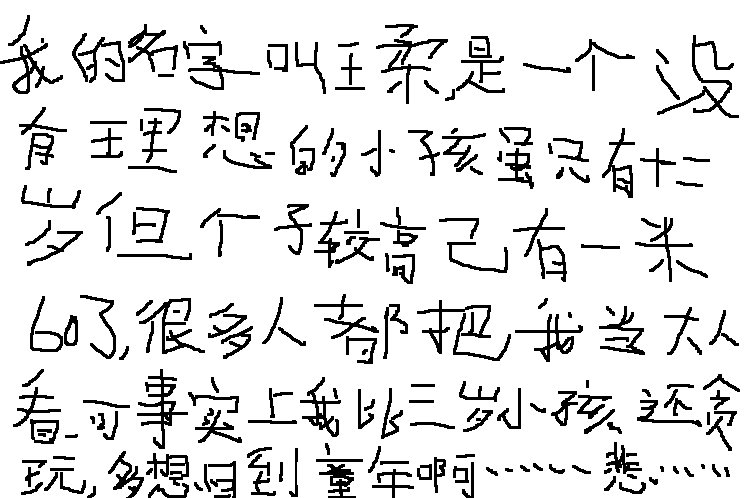 我的名字叫王柔,是一个没
有理想的小孩虽只有十二
岁但个子较高已有一米
60了,很多人都把我当大人
看.可事实上我比三岁小孩还贪
玩,多想回到童年啊……悲……